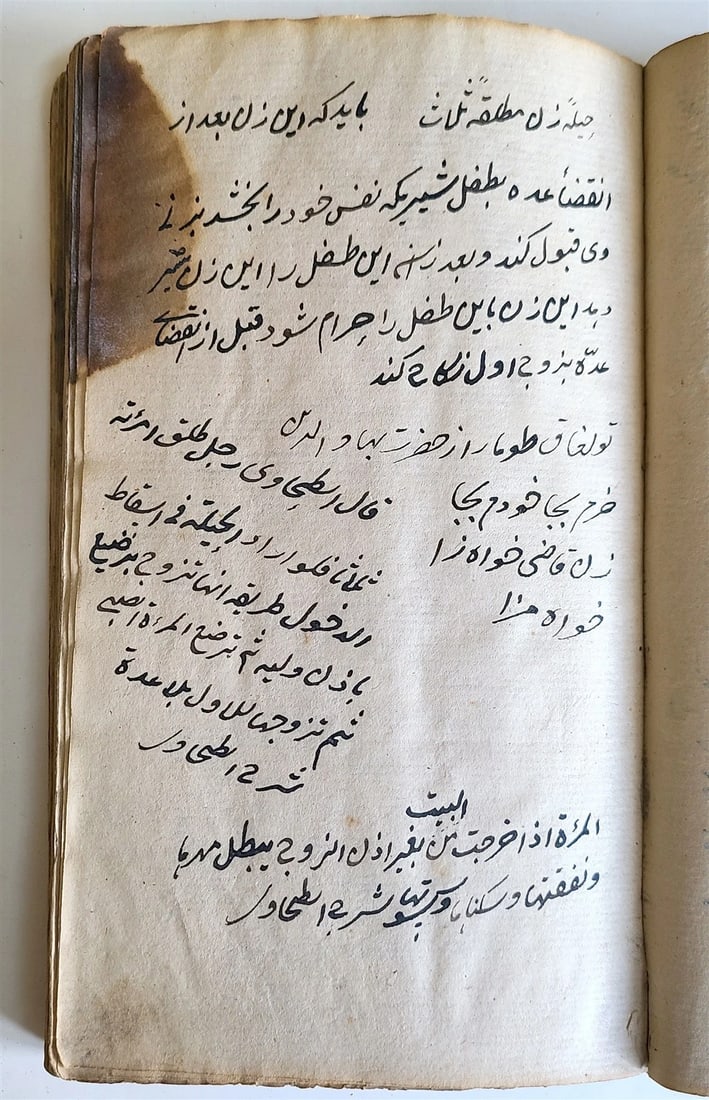 حیلهٔ زن مطلقهٔ ثلاث باید که این زن بعد از
انقضاء عده بطفل شیر یکه نفس خود را بخشد بزنی
وی قبول کند و بعد زان این طفل را این زن شیر
دهد این زن باین طفل را حرام شود قبل از انقضای
عدّه بزوج اول نکاح کند
طومار از حضرت بهاو الدین
قال الطحاوی رجل طلق امرئته
ثلاثا فلو اراد الحیلة فی اسقاط
الدخول طریقه انها تزوج برضیع
باذن ولیه ثم ترضع المرئة الصبی
ثم تزوجها للاول بلا عدة
شرح الطحاوی
بجا خودم بجا
زن قاضی خواه زا
خواه
المرئة اذا خرجت من البیت بغیر اذن الزوج یبطل مهرها
و نفقتها و سکناها و کسوتها شرح الطحاوی